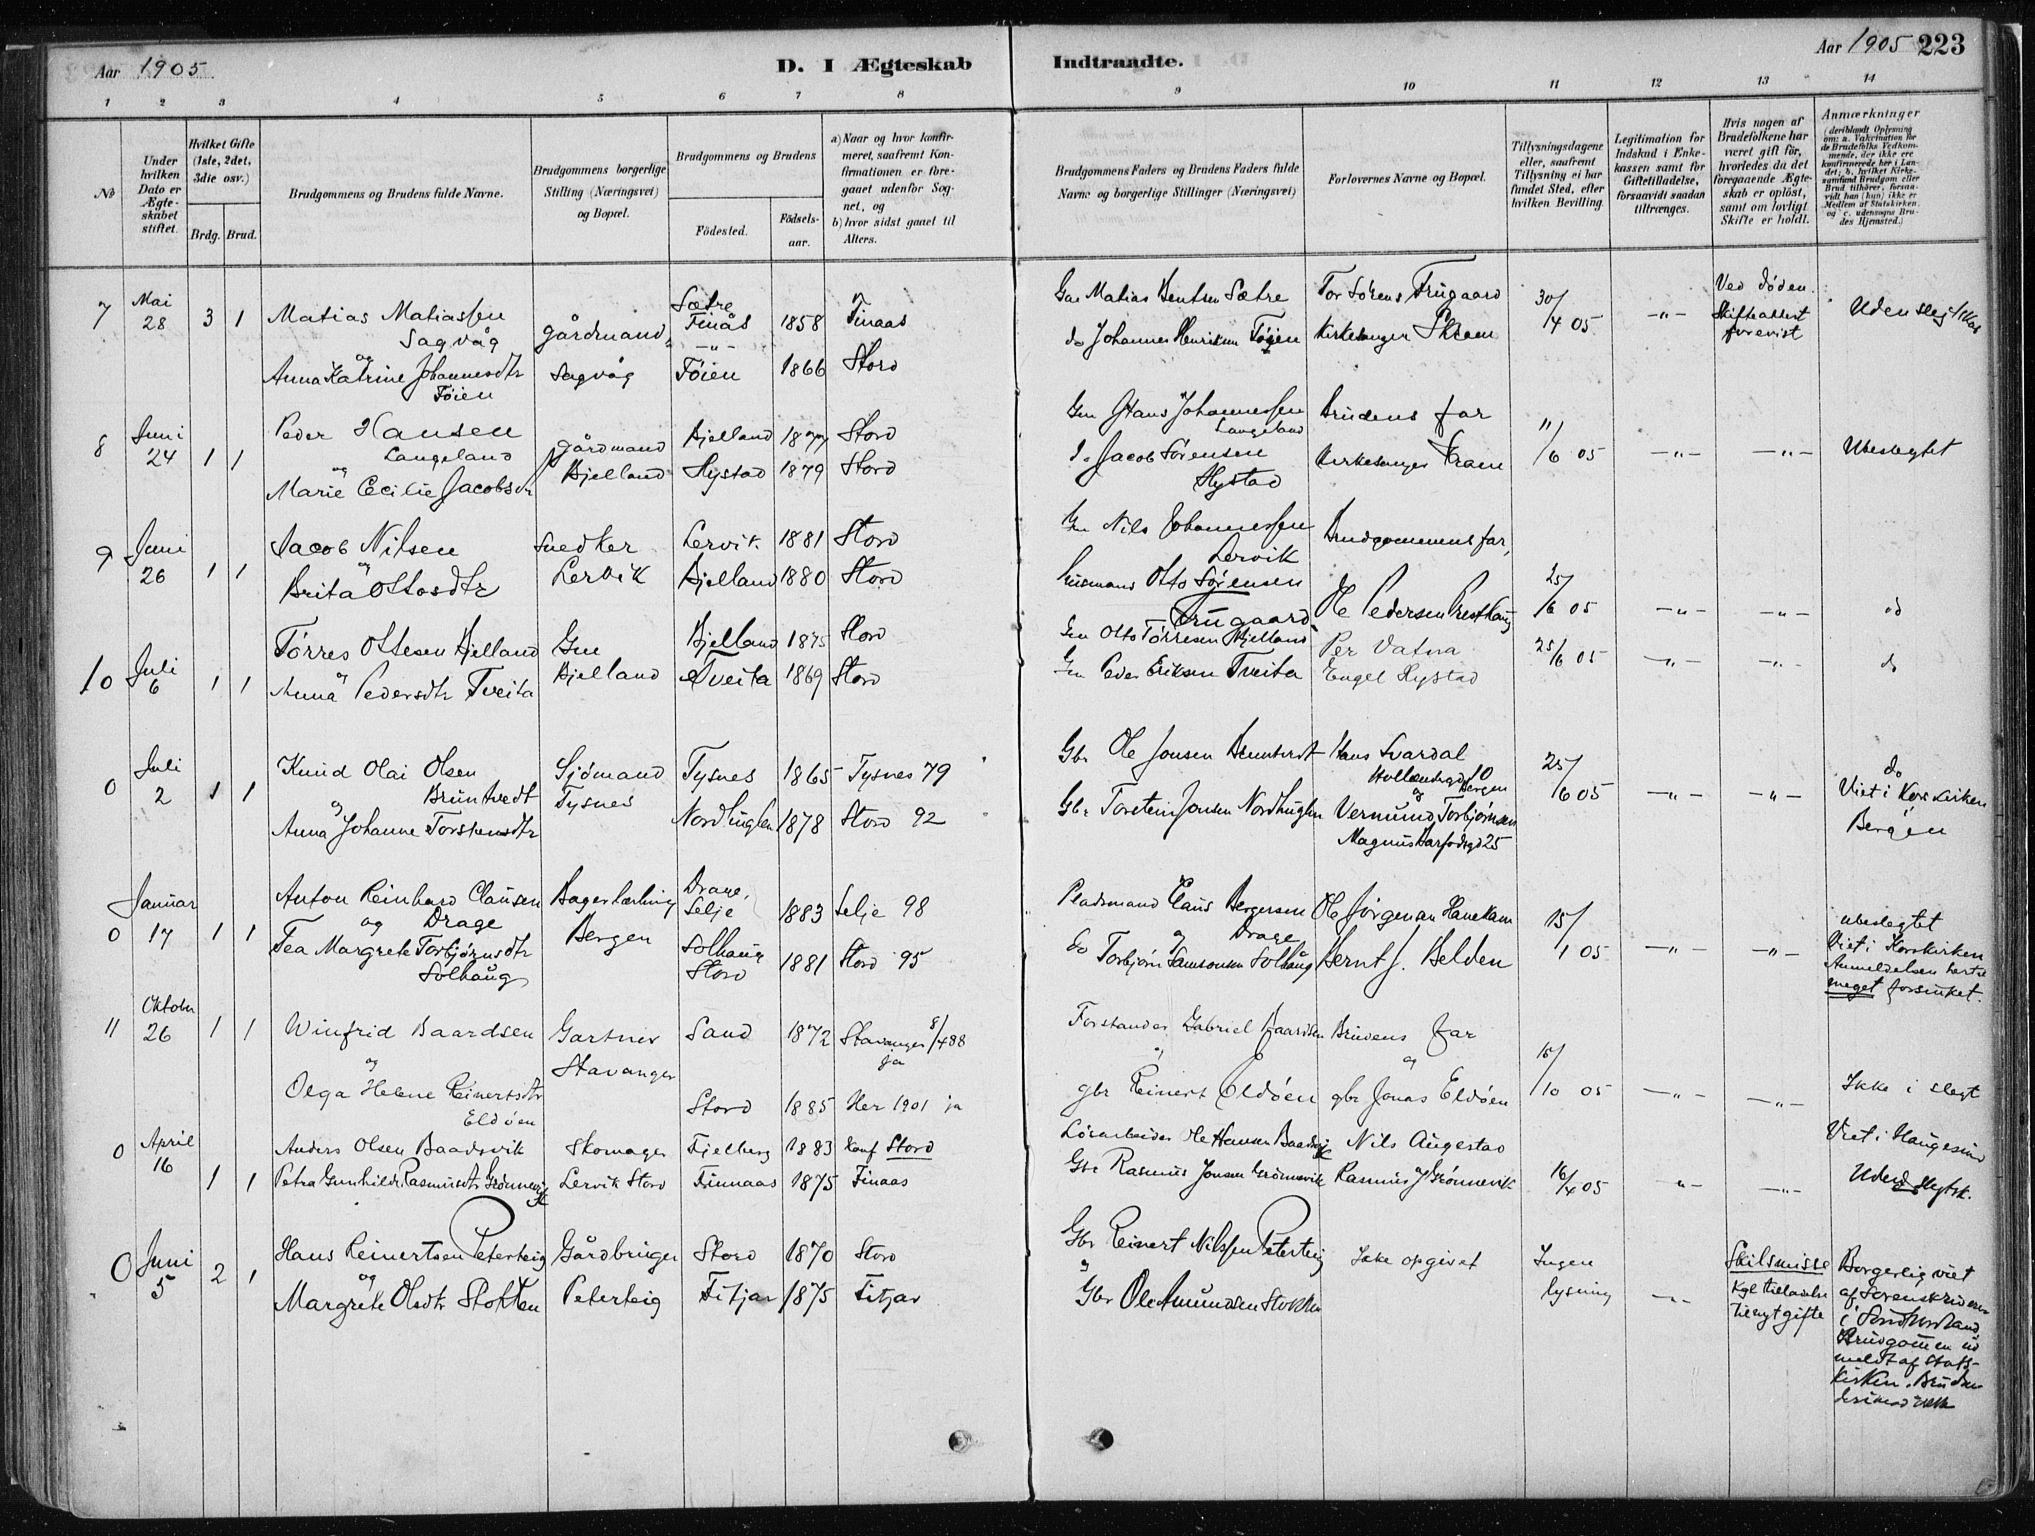 Aar 1905
D. I Ægteskab
Indtraadte.
Aar 1905 223
1 2 3 4 5 6 7 8
9 10 11 12 13 14
No
Under hvilken Dato er Ægteskabet stiftet.
Hvilket Gifte (1ste, 2det, 3die osv.)
Brdg. Brud.
Brudgommens og Brudens fulde Navne.
Brudgommens borgerlige Stilling (Næringsvei) og Bopæl.
Brudgommens og Brudens
Fødested.
Fødselsaar.
a) Naar og hvor konfirmeret, saafremt Konfirmationen er foregaaet udenfor Sognet, og
b) hvor sidst gaaet til Alters.
Brudgommens Faders og Brudens Faders fulde Navne og borgerlige Stillinger (Næringsvei)
Forlovernes Navne og Bopæl.
Tillysningsdagene eller, saafremt Tillysning ei har fundet Sted, efter hvilken Bevilling.
Legitimation for Indskud i Enkekassen samt for Giftetilladelse, forsaavidt saadan tiltrænges.
Hvis nogen af Brudefolkene har været gift før, hvorledes da det foregaaende Ægteskab er opløst, samt om lovligt Skifte er holdt.
Anmærkninger
(deriblandt Oplysning om: a. Vakcination for de Brudefolks Vedkommende, der ikke ere konfirmerede her i Landet; b. hvilket Kirkesamfund Brudgom eller Brud tilhører, forsaavidt han (hun) ikke er Medlem af Statskirken, og c. udensogns Brudes Hjemsted.)
7 Mai 28 3 1 Matias Matiassen Sagvåg gårdmand Sætre Finås 1858 Finaas
og
Anna Katrine Johannesdtr Føien Sagvåg Føien 1866 Stord
Matias Bentsen Sætre Tor Sørens Frugaard 30/4 05 -"- Ved døden. Skifteattest forevist
do Johannes Henriksen Føyen Kirkesanger
8 Juni 24 1 1 Peder Hansen Langeland gårdmand Hjelland Bjelland Stord
og
Marie Cecilie Jacobsdr Hystad 1879 Stord
Hans Johannessen Langeland Brudens far 11/6 05 -"- -"- Ubeslegtet
do Jacob Sørensen Hystad Kirkesanger
9 Juni 26 1 1 Jacob Nilsen Snedker Lervik Lervik 1881 Stord
og
Brita Ottosdtr Bjelland 1880 Stord
Nils Johannessen Lervik Brudgommens far,
Husmand Otto Sørensen Frugaard Ole Pedersen 25/6 05 -"- -"- do
10 Juli 6 1 1 Tørres Ottesen Bjelland Gm Bjelland Bjelland 1875 Stord
og
Anna Pedersdtr Tveita Tveita 1869 Stord
Otto Tørresen Bjelland Per Vatna 25/6 05 -"- -"- do
Peder Eriksen Tveita Engel Hystad
0 Juli 2 1 1 Knud Olai Olsen Bruntvedt Sjømand Tysnes Tysnes 1865 Tysnes 79
og
Anna Johanne Torstensdtr Nordhuglen 1878 Stord 92
Gbr Ole Jonsen Hans Svardal 10 Bergen 25/6 05 -"- -"- do
Gbr Torstein Jonsen Nordhuglen og Vermund Torbjørnsen Viet i Korskirken Bergen
Magnus Barfodsgd 25
0 Januar 17 1 1 Anton Reinhard Clausen Drage Bagerlærling Bergen Drage, Selje 1883 Selje 98
og
Tea Margrete Torbjørnsdtr Solhaug Solhaug Stord 1881 Stord 95
Pladsmand Claus Drage Ole Jørgen 15/1 05 -"- -"- ubeslegtet
og
do Torbjørn Samsonsen Solhaug Bernt J. Belden Viet i Korskirken
Anmeldelsen meget forsinket.
11 Oktober 26 1 1 Winfrid Baardsen Gartner Stavanger Sand 1872 Stavanger 8/4 88 ja
og
Olga Helene Reinertsdtr Eldøen Stord 1885 Her 1901 ja
Forstander Gabriel Baardsen Brudens far
og
gbr Reinert Eldøen gbr Jonas Eldøen 15/10 05 -"- -"- Ikke i slegt
0 April 16 1 1 Anders Olsen Baadsvik Skomager Fjelberg 1883 Konf Stord
Petra Gunhilde Rasmusdtr Grønnevik Lervik Stord Finnaas 1875 Finaas
Løsarbeider Ole Hansen Baadsvik Nils Augestad Viet i Haugesund
Gbr Rasmus Jonsen Grønnevik Rasmus J Grønnevik 16/4 05 -"- -"- Uden slegtsk.
0 Juni 5 2 1 Hans Reinertsen Peterteig Gårdbruger Stord 1870 Stord
og
Margrete Olsdtr Stokken Peterteig Fitjar 1875 Fitjar
Gbr Reinert Nilssen Peterteig Ikke opgivet Ingen lysning -"- Skilsmisse Kgl tilladelse til nyt gifte
og
Gbr Ole Amundsen Stokken
Borgerlig viet af Sorenskriveren i Søndhordland Brudgommen udmeldt af Statskirken. Bruden derimod ikke